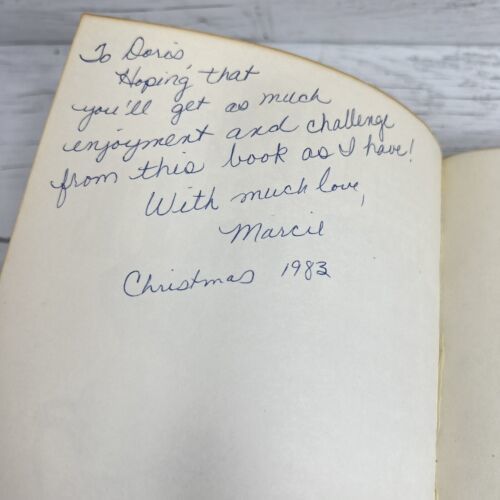 To Doris,
Hoping that
you'll get as much
enjoyment and challenge
from this book as I have!
With much love,
Marcie
Christmas 1983